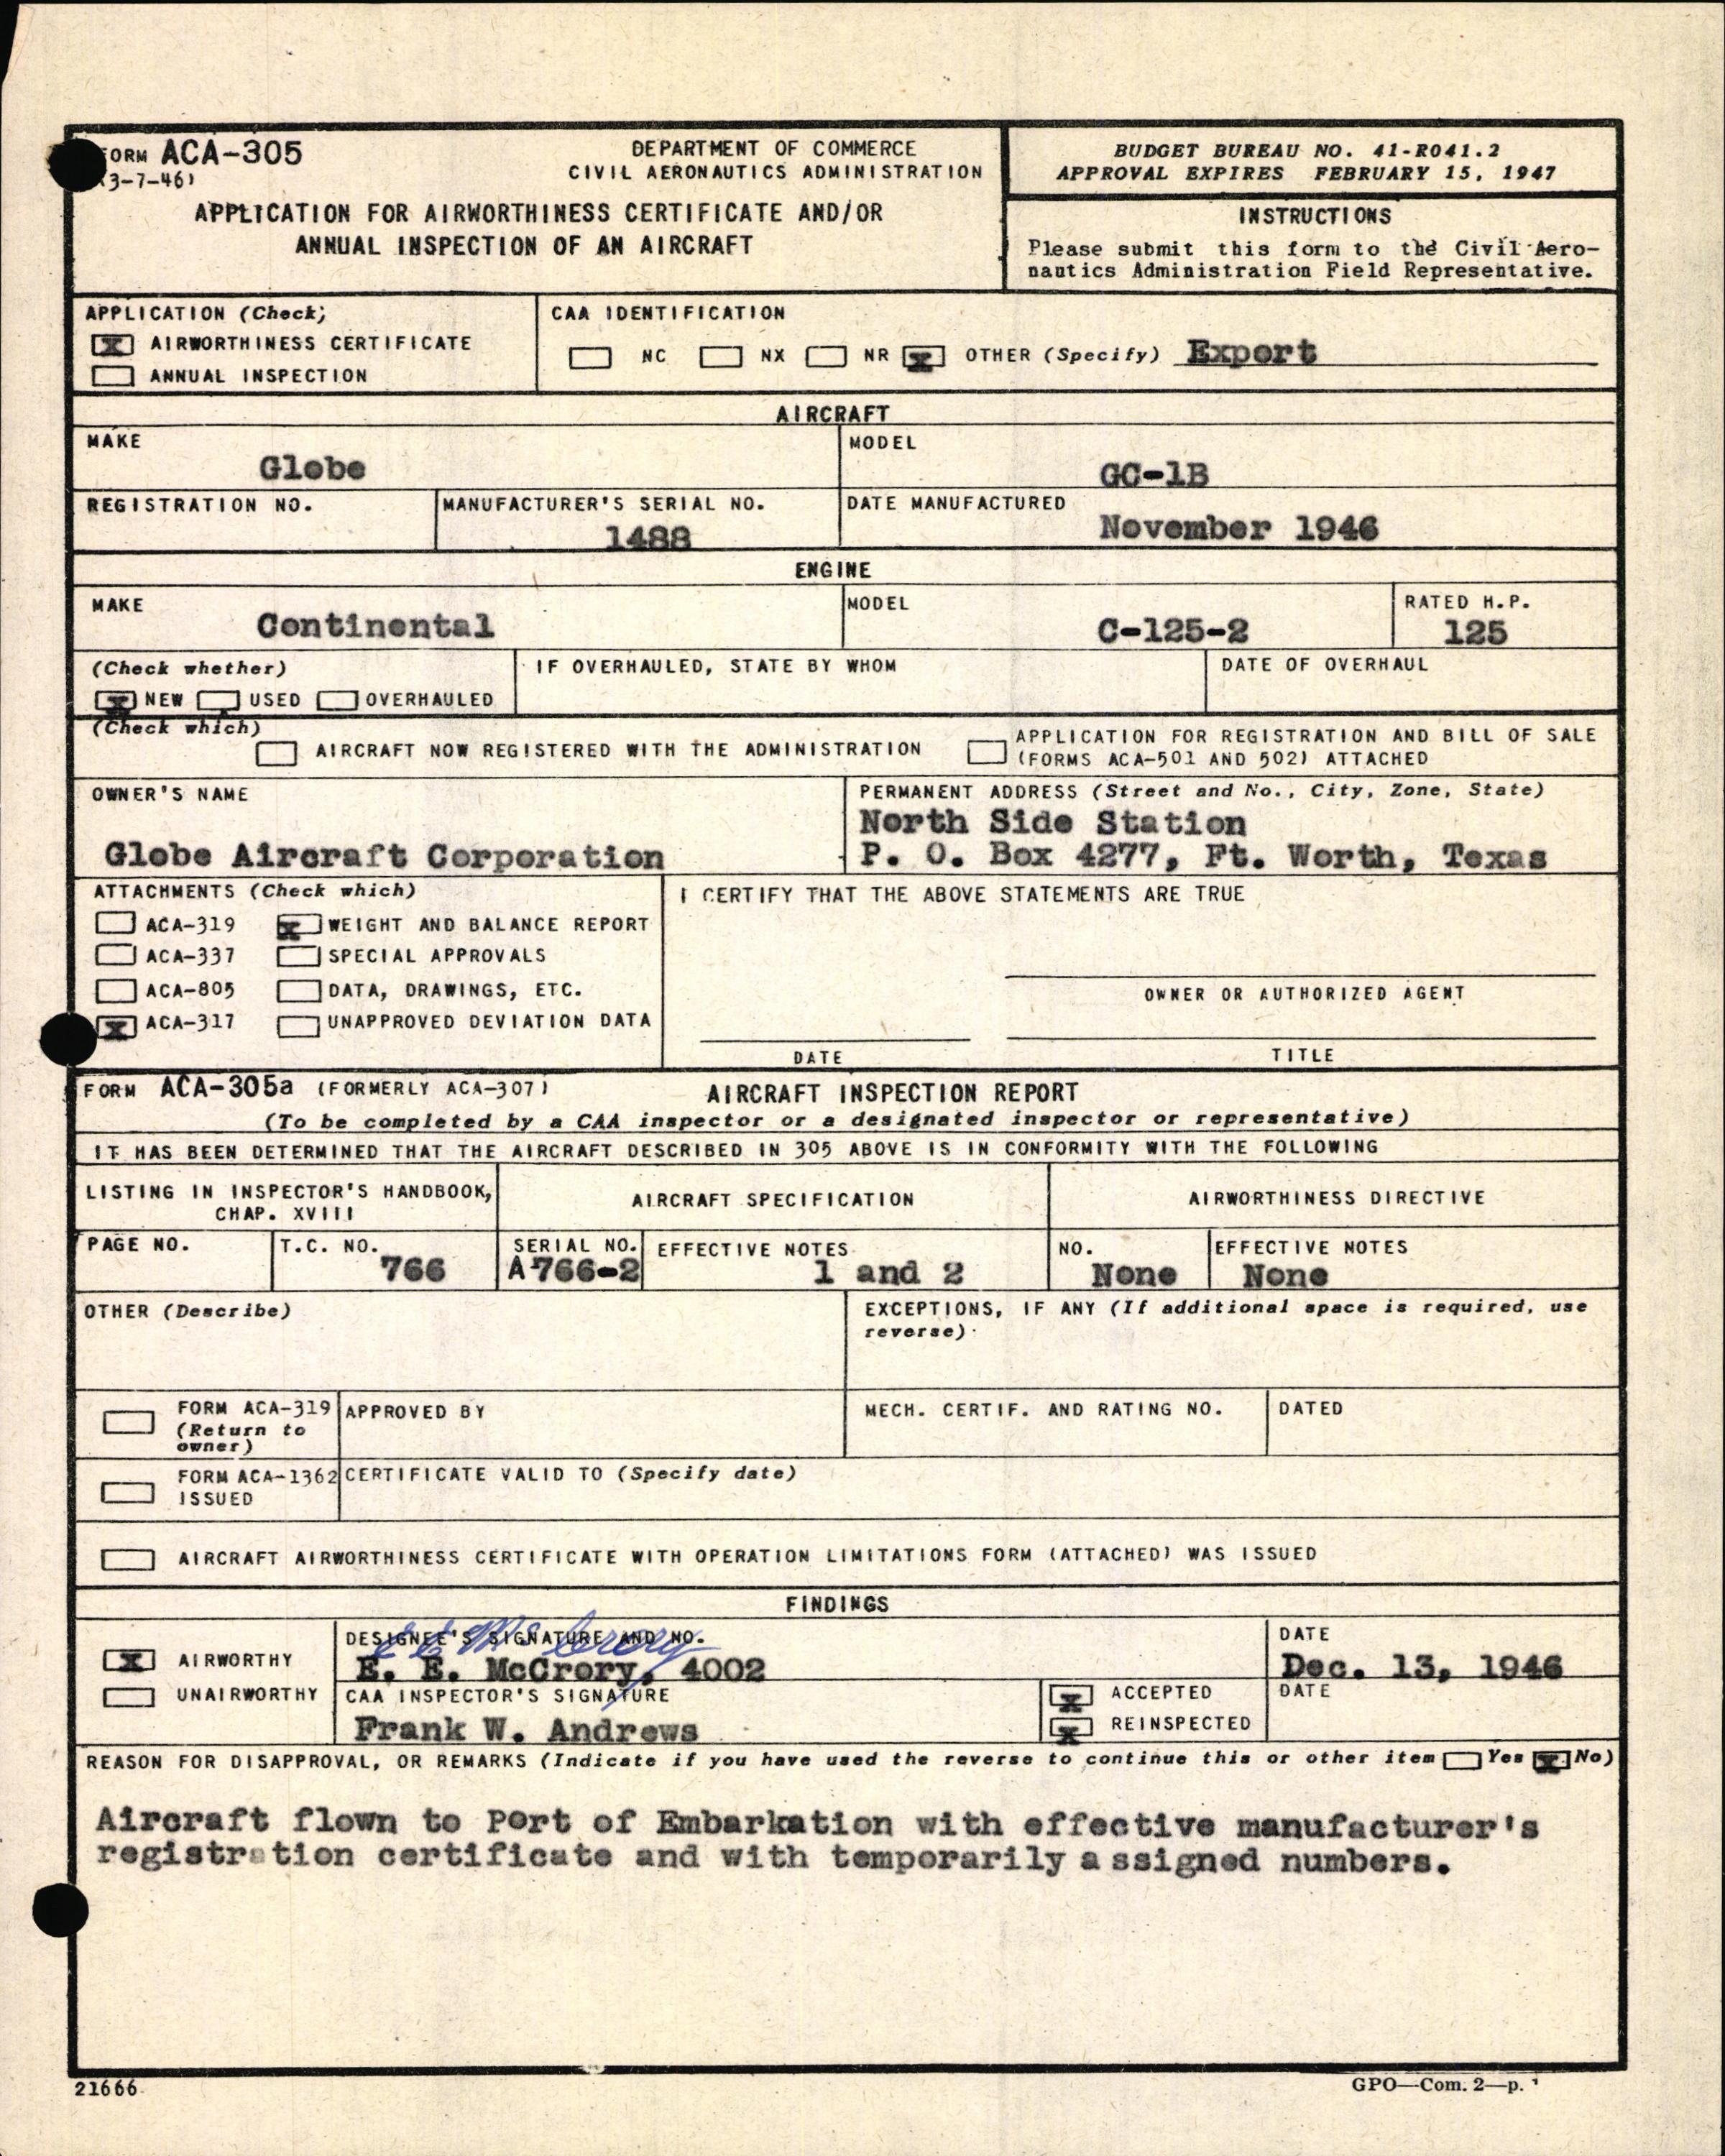 FORM ACA-305
(3-7-46)
DEPARTMENT OF COMMERCE
CIVIL AERONAUTICS ADMINISTRATION
APPLICATION FOR AIRWORTHINESS CERTIFICATE AND/OR
ANNUAL INSPECTION OF AN AIRCRAFT
BUDGET BUREAU NO. 41-R041.2
APPROVAL EXPIRES FEBRUARY 15, 1947
INSTRUCTIONS
Please submit this form to the Civil Aero-
nautics Administration Field Representative.
APPLICATION (Check)
X AIRWORTHINESS CERTIFICATE
ANNUAL INSPECTION
CAA IDENTIFICATION
NC NX NR X OTHER (Specify) Export
AIRCRAFT
MAKE
Globe
MODEL
GC-1B
REGISTRATION NO.
MANUFACTURER'S SERIAL NO.
1488
DATE MANUFACTURED
November 1946
ENGINE
MAKE
Continental
MODEL
C-125-2
RATED H.P.
125
(Check whether)
X NEW USED OVERHAULED
IF OVERHAULED, STATE BY WHOM
DATE OF OVERHAUL
(Check which)
AIRCRAFT NOW REGISTERED WITH THE ADMINISTRATION
APPLICATION FOR REGISTRATION AND BILL OF SALE
(FORMS ACA-501 AND 502) ATTACHED
OWNER'S NAME
Globe Aircraft Corporation
PERMANENT ADDRESS (Street and No., City, Zone, State)
North Side Station
P. O. Box 4277, Ft. Worth, Texas
ATTACHMENTS (Check which)
ACA-319 X WEIGHT AND BALANCE REPORT
ACA-337 SPECIAL APPROVALS
ACA-805 DATA, DRAWINGS, ETC.
X ACA-317 UNAPPROVED DEVIATION DATA
I CERTIFY THAT THE ABOVE STATEMENTS ARE TRUE
OWNER OR AUTHORIZED AGENT
DATE
TITLE
FORM ACA-305a (FORMERLY ACA-307)
AIRCRAFT INSPECTION REPORT
(To be completed by a CAA inspector or a designated inspector or representative)
IT HAS BEEN DETERMINED THAT THE AIRCRAFT DESCRIBED IN 305 ABOVE IS IN CONFORMITY WITH THE FOLLOWING
LISTING IN INSPECTOR'S HANDBOOK,
CHAP. XVIII
AIRCRAFT SPECIFICATION
AIRWORTHINESS DIRECTIVE
PAGE NO.
T.C. NO.
766
SERIAL NO.
A-766-2
EFFECTIVE NOTES
1 and 2
NO.
None
EFFECTIVE NOTES
None
OTHER (Describe)
EXCEPTIONS, IF ANY (If additional space is required, use
reverse)
FORM ACA-319
(Return to
owner)
APPROVED BY
MECH. CERTIF. AND RATING NO.
DATED
FORM ACA-1362
ISSUED
CERTIFICATE VALID TO (Specify date)
AIRCRAFT AIRWORTHINESS CERTIFICATE WITH OPERATION LIMITATIONS FORM (ATTACHED) WAS ISSUED
FINDINGS
X AIRWORTHY
UNAIRWORTHY
DESIGNEE'S SIGNATURE AND NO.
E E McCrory
E. E. McCrory, 4002
DATE
Dec. 13, 1946
CAA INSPECTOR'S SIGNATURE
Frank W. Andrews
X ACCEPTED
X REINSPECTED
DATE
REASON FOR DISAPPROVAL, OR REMARKS (Indicate if you have used the reverse to continue this or other item Yes X No)
Aircraft flown to Port of Embarkation with effective manufacturer's
registration certificate and with temporarily assigned numbers.
21666
GPO—Com. 2—p.